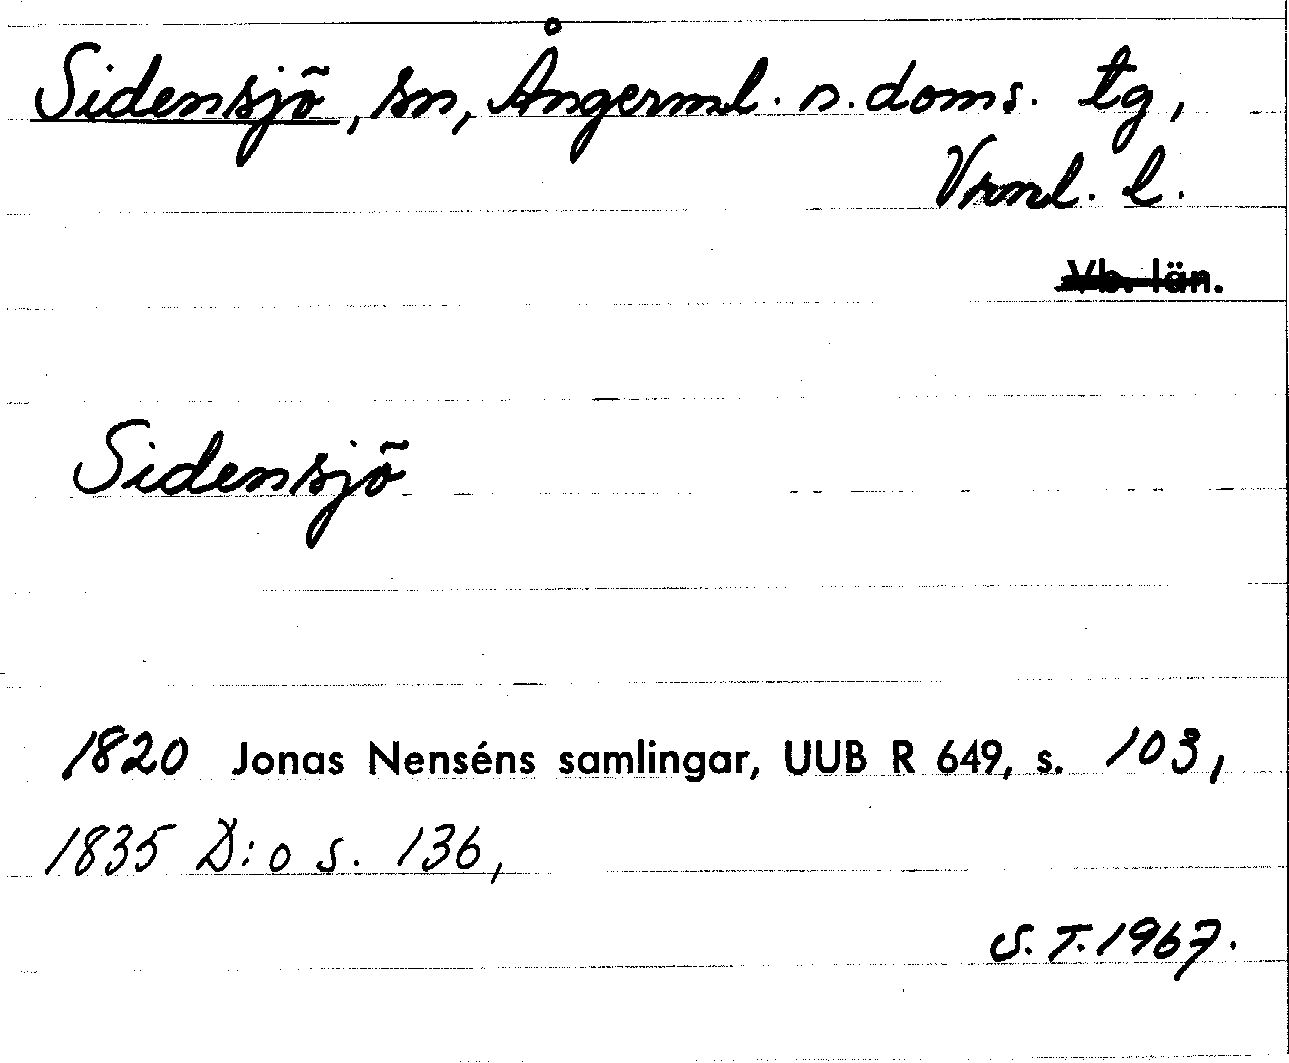 Sidensjö, sn, Ångerml. n. doms. tg,
Vrnl. l.
Vb. län.
Sidensjö
1820 Jonas Nenséns samlingar, UUB R 649, s. 103,
1835 D:o s. 136,
S. T. 1967.